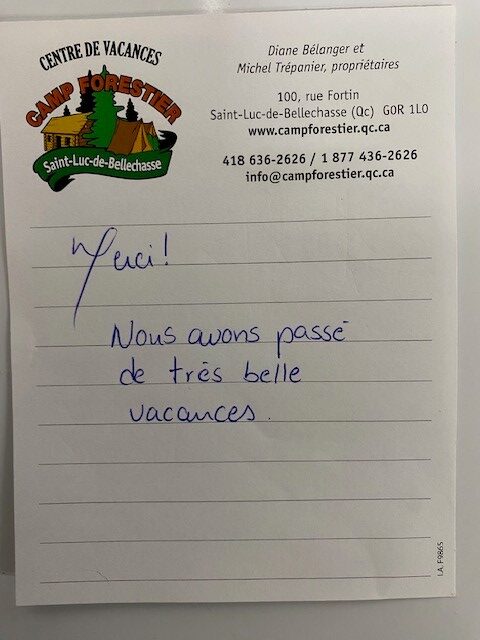 CENTRE DE VACANCES
CAMP FORESTIER
Saint-Luc-de-Bellechasse
Diane Bélanger et
Michel Trépanier, propriétaires
100, rue Fortin
Saint-Luc-de-Bellechasse (Qc) G0R 1L0
www.campforestier.qc.ca
418 636-2626 / 1 877 436-2626
info@campforestier.qc.ca
Merci!
Nous avons passé
de très belle
vacances.
I.A. F9865